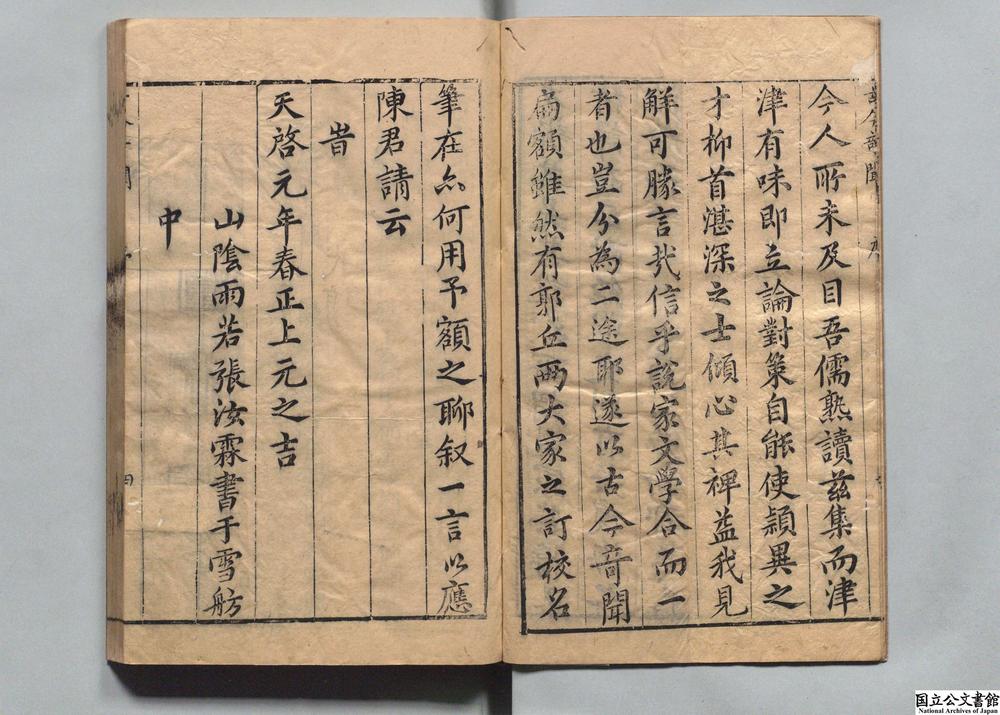 今人所未及目吾儒熟讀茲集而津
津有味即立論對策自能使頴異之
才抑首湛深之士傾心其裨益我見
解可勝言哉信乎說家文學合而一
者也豈分為二途耶遂以古今竒聞
為額雖然有郭丘兩大家之訂校名
筆在亦何用予額之聊叙一言以應
陳君請云
旹
天啓元年春正上元之吉
山陰雨若張汯霖書于雪舫
中
国立公文書館
National Archives of Japan